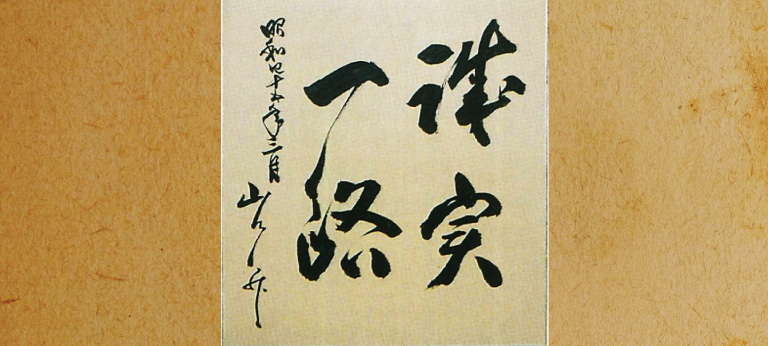 誠実
一路
昭和四十五年三月
山口